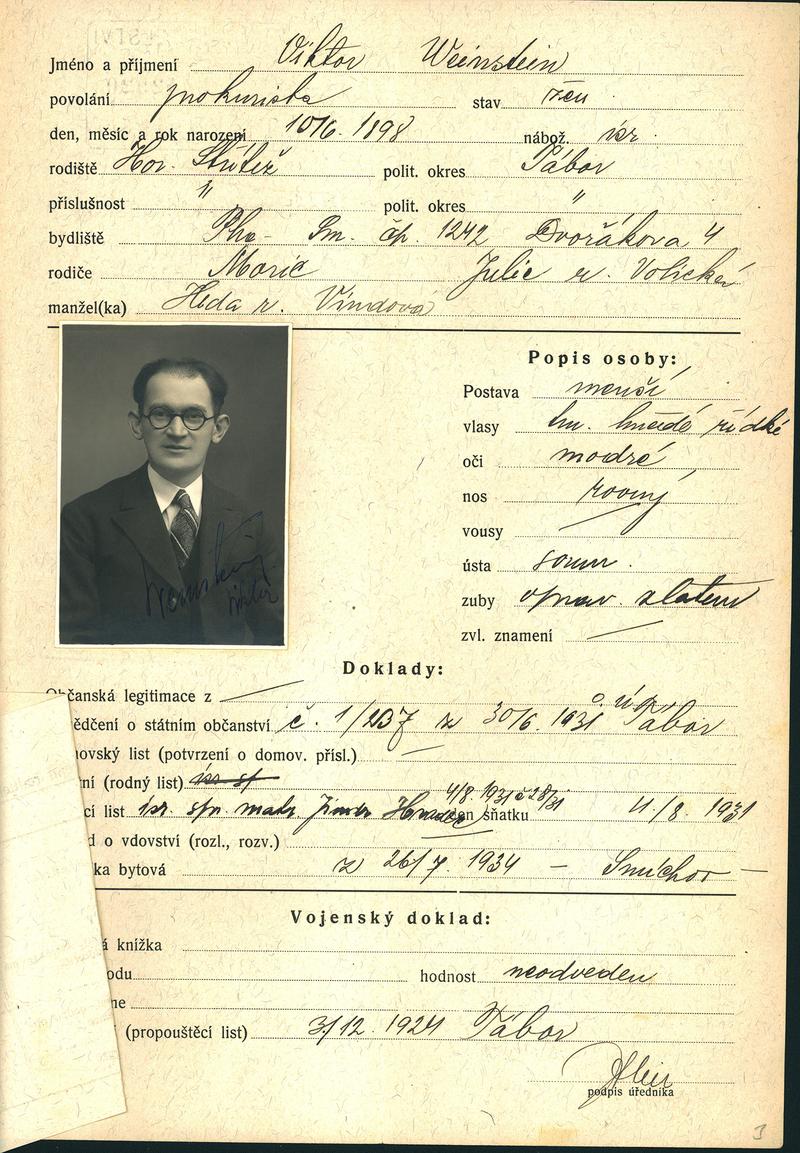 Jméno a příjmení Viktor Weinstein
povolání prokurista stav žen
den, měsíc a rok narození 10/6. 1898 nábož. isr.
rodiště Hor. Střítež polit. okres Tábor
příslušnost " polit. okres "
bydliště Pha- Sm. čp. 1242 Dvořákova 4
rodiče Moric Julie r. Volická
manžel(ka) Heda r. Vindová
Popis osoby:
Postava menší
vlasy tm. hnědé řídké
oči modré
nos rovný
vousy
ústa soum.
zuby oprav. zlatem
zvl. znamení
Weinstein
Viktor
Doklady:
Občanská legitimace z
ědčení o státním občanství č. 1/237 z 30/6. 1931 Tábor
ovský list (potvrzení o domov. přísl.)
ní (rodný list)
4/8. 1931
cí list isr. spr. matr. Jindr. Hradec en sňatku 11/8 1931
d o vdovství (rozl., rozv.)
ka bytová z 26/7 1934 – Smíchov –
Vojenský doklad:
á knížka
odu hodnost neodveden
ne
(propouštěcí list) 3/12. 1924 Tábor
podpis úředníka
3